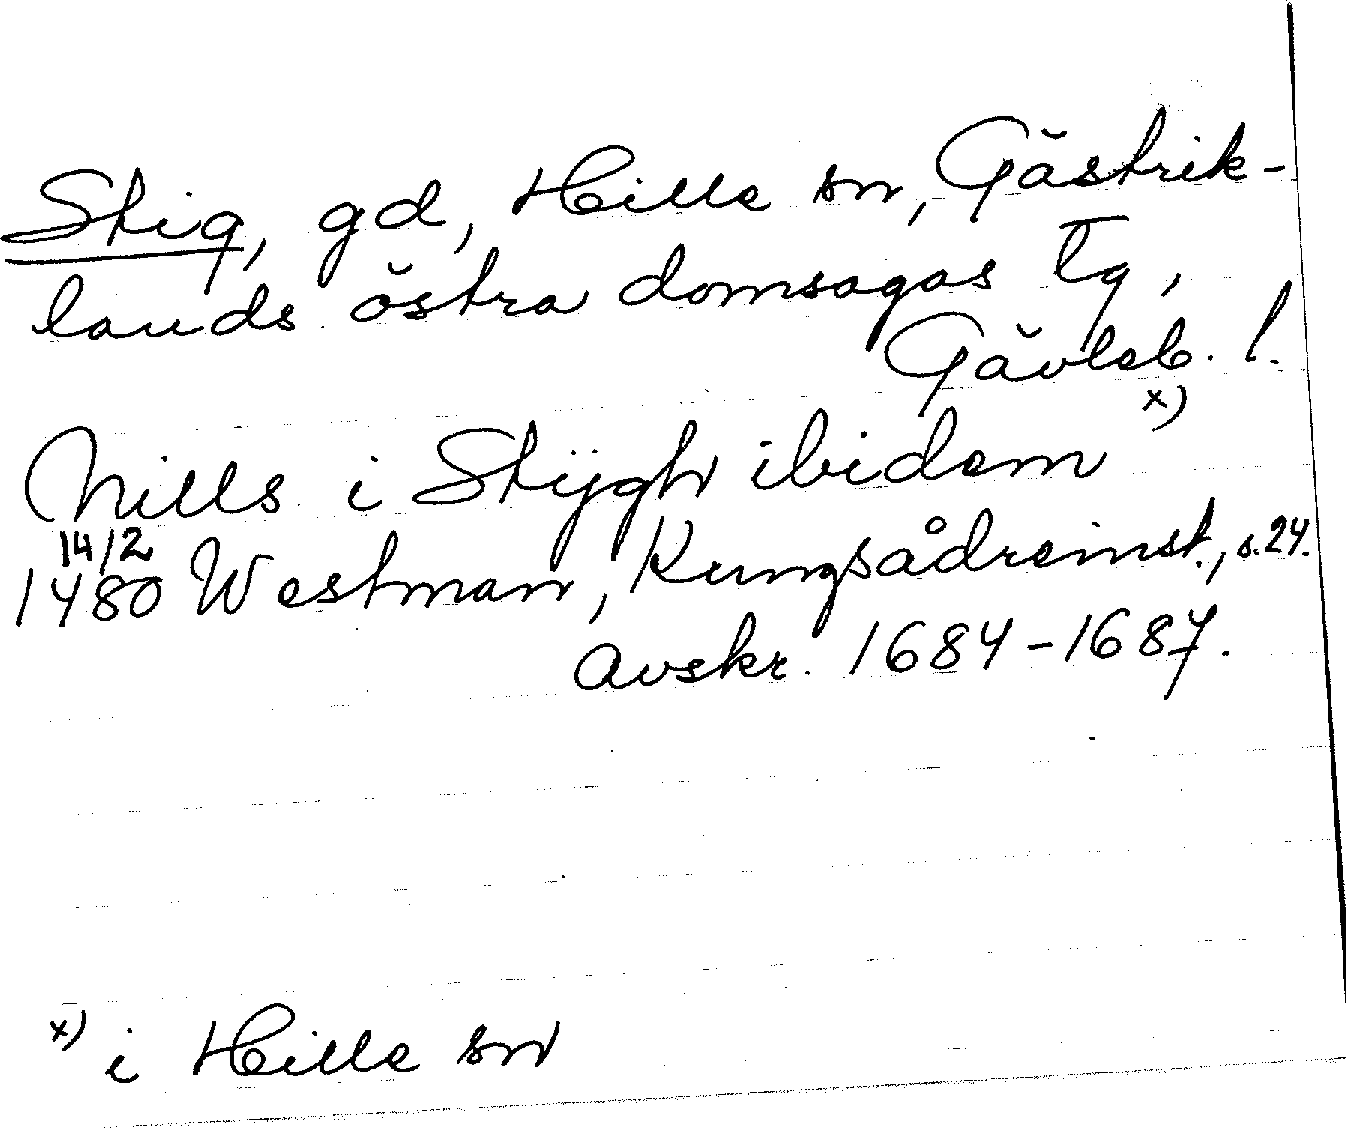 Stig, gd, Hille sn, Gästrik-
lands östra domsagas tg,
Gävleb. l.
Nills i Stÿgh ibidem x)
14/2
1480 Westman, Kungsådreinst., s. 24.
Avskr. 1684-1687.
x) i Hille sn